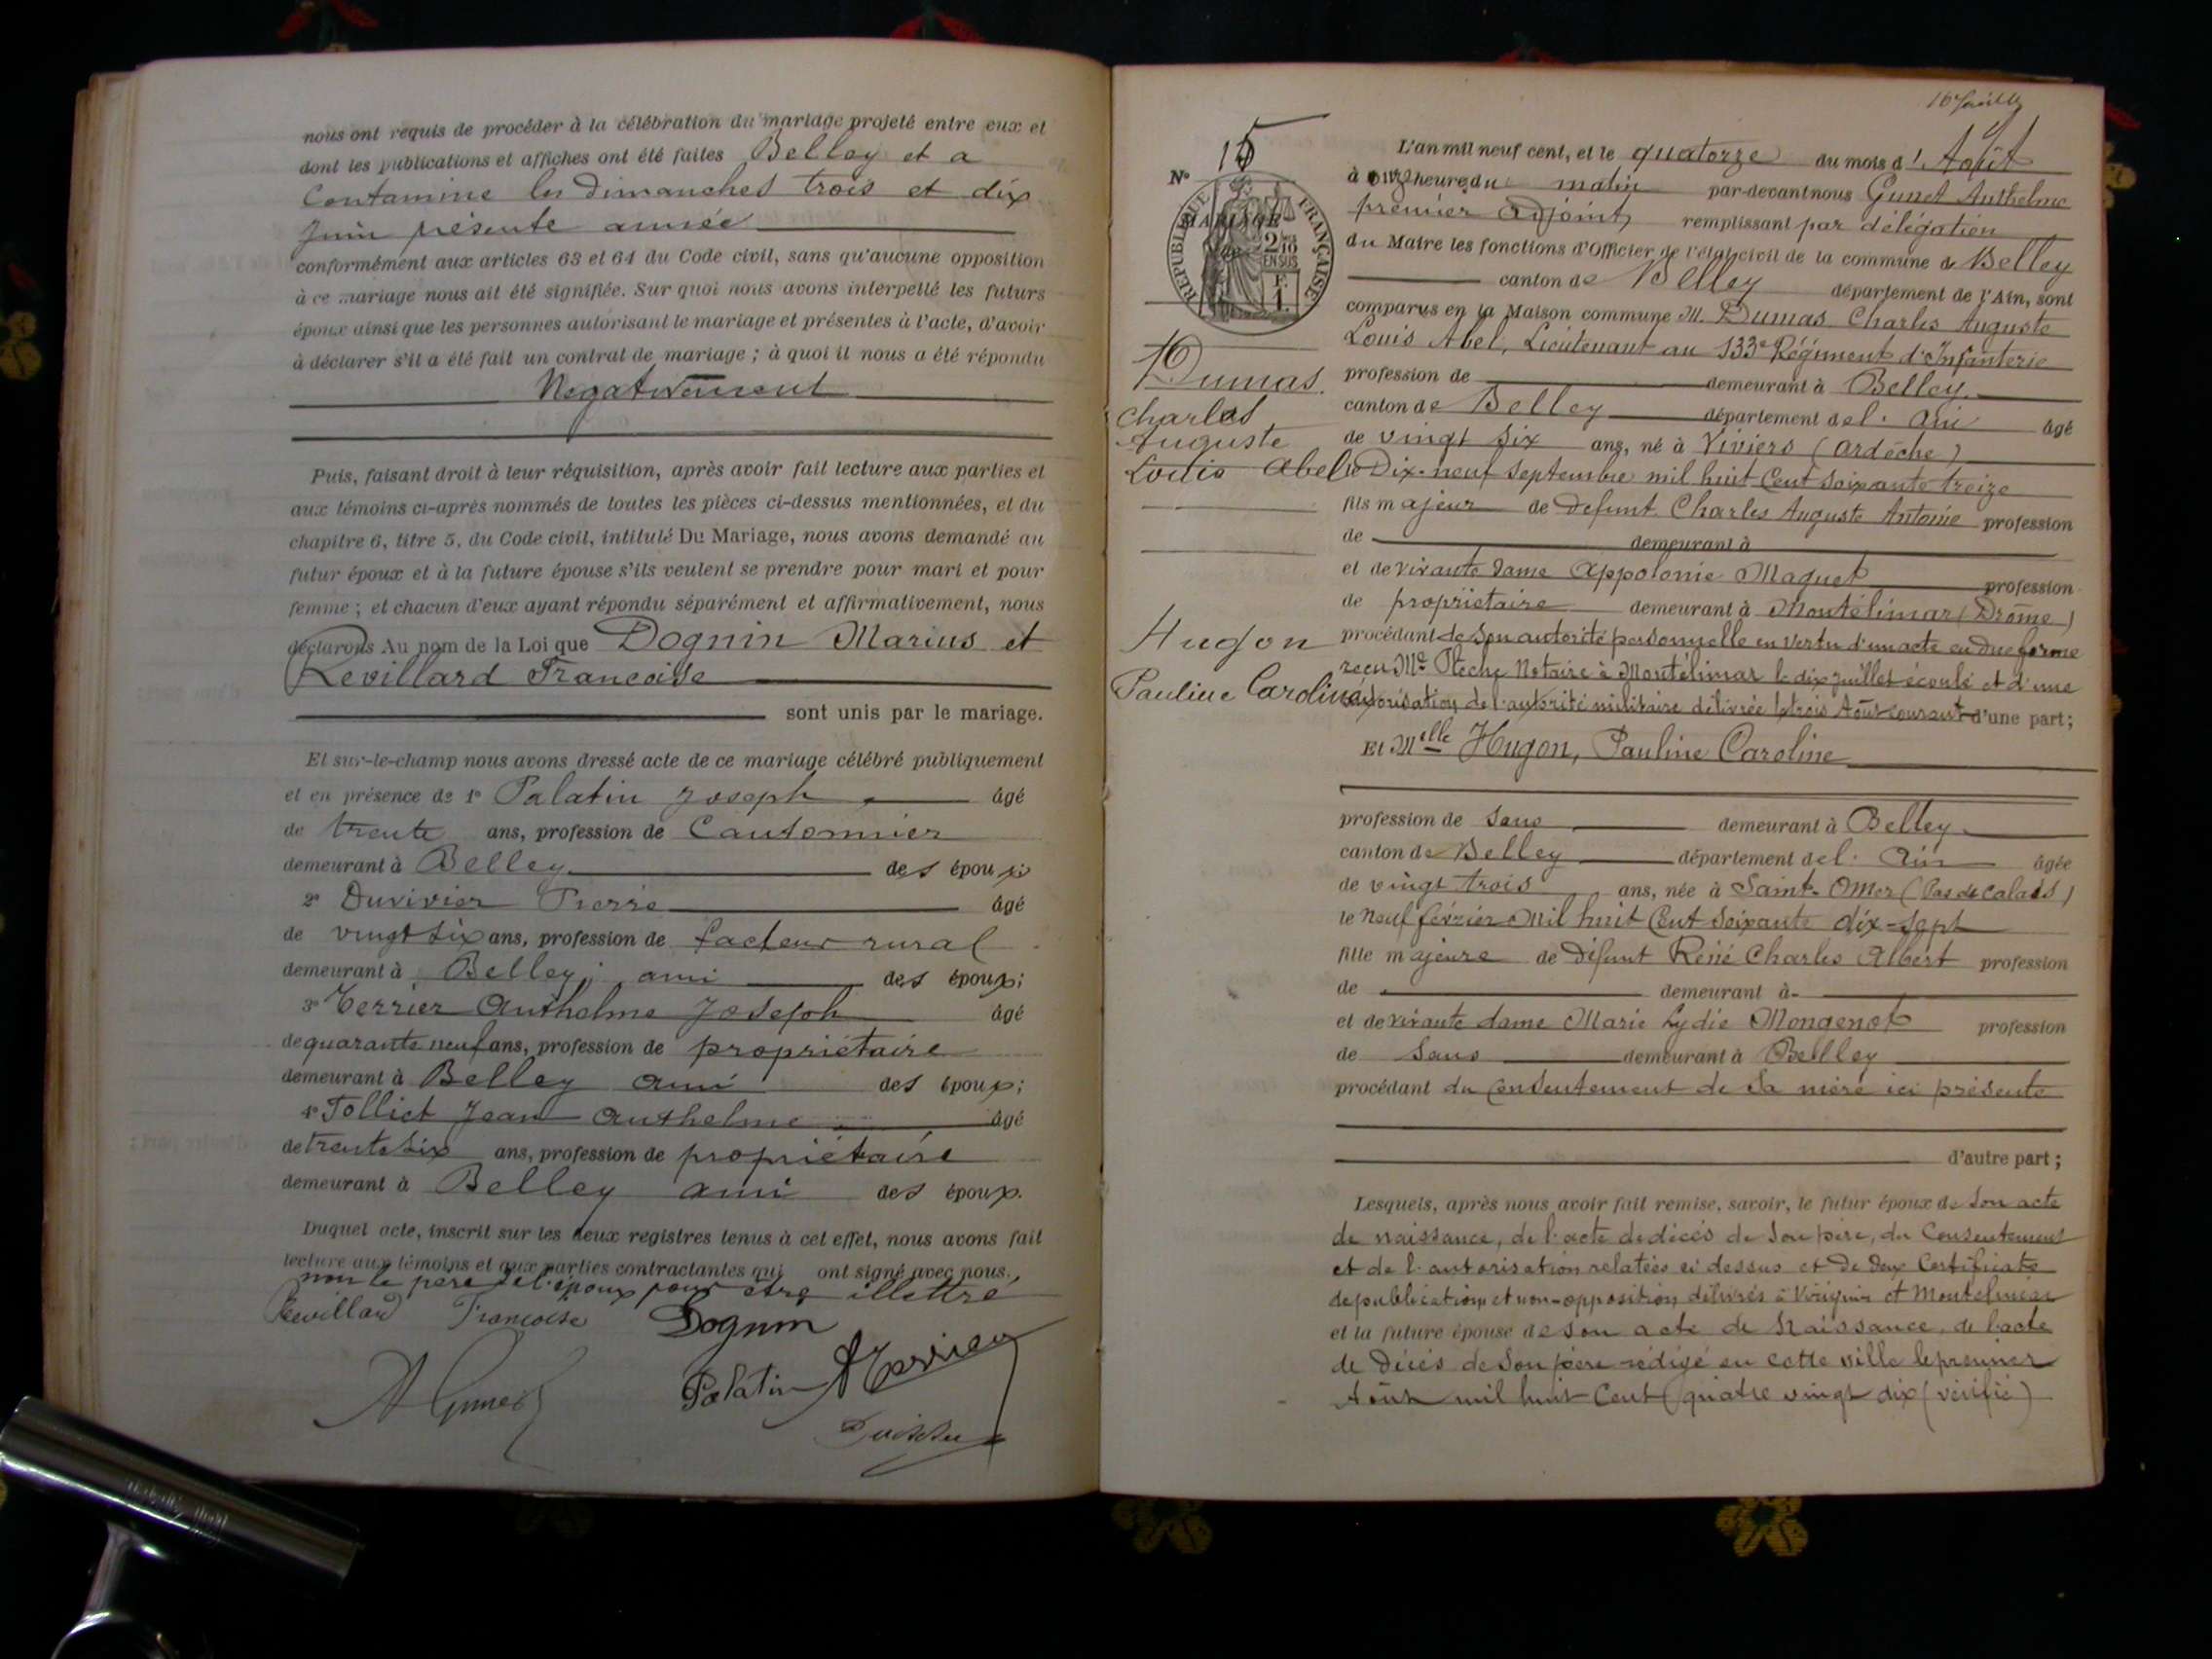 nous ont requis de procéder à la célébration du mariage projeté entre eux et
dont les publications et affiches ont été faites Belley et a
Contamine les dimanches trois et dix
Juin présente année
conformément aux articles 63 et 64 du Code civil, sans qu'aucune opposition
à ce mariage nous ait été signifiée. Sur quoi nous avons interpellé les futurs
époux ainsi que les personnes autorisant le mariage et présentes à l'acte, d'avoir
à déclarer s'il a été fait un contrat de mariage ; à quoi il nous a été répondu
Négativement
Puis, faisant droit à leur réquisition, après avoir fait lecture aux parties et
aux témoins ci-après nommés de toutes les pièces ci-dessus mentionnées, et du
chapitre 6, titre 5, du Code civil, intitulé Du Mariage, nous avons demandé au
futur époux et à la future épouse s'ils veulent se prendre pour mari et pour
femme ; et chacun d'eux ayant répondu séparément et affirmativement, nous
déclarons Au nom de la Loi que Dognin Marius et
Revillard Francoise
sont unis par le mariage.
Et sur-le-champ nous avons dressé acte de ce mariage célébré publiquement
et en présence de 1° Palatin Joseph âgé
de trente ans, profession de Cantonnier
demeurant à Belley des époux
2° Duvivier Pierre âgé
de vingt six ans, profession de facteur rural
demeurant à Belley ami des époux ;
3° Terrier Anthelme Joseph âgé
de quarante neuf ans, profession de propriétaire
demeurant à Belley ami des époux ;
4° Tolliet Jean Anthelme âgé
de trente six ans, profession de propriétaire
demeurant à Belley ami des époux.
Duquel acte, inscrit sur les deux registres tenus à cet effet, nous avons fait
lecture aux témoins et aux parties contractantes qui ont signé avec nous.
non le père de l'époux pour être illettré
Revillard Francoise Dognin
Palatin Terrier
N° 15
RÉPUBLIQUE FRANÇAISE
MARIAGE
2/10 EN SUS
F. 1
16
Dumas
Charles
Auguste
Louis Abel
Hugon
Pauline Caroline
L'an mil neuf cent, et le quatorze du mois d' Août
à onze heure du matin par-devant nous Gunet Anthelme
premier adjoint, remplissant par délégation
du Maire les fonctions d'Officier de l'état civil de la commune de Belley
canton de Belley département de l'Ain, sont
comparus en la Maison commune M. Dumas Charles Auguste
Louis Abel, Lieutenant au 133e Régiment d'Infanterie
profession de demeurant à Belley
canton de Belley département de l' Ain âgé
de vingt six ans, né à Viviers (Ardèche)
le Dix-neuf septembre mil huit Cent soixante treize
fils majeur de defunt Charles Auguste Antoine profession
de demeurant à
et de vivante dame Appolonie Maquet profession
de propriétaire demeurant à Montélimar (Drôme)
procédant de son autorité personnelle en vertu d'un acte en due forme
reçu Me Notaire à Montélimar le dix juillet écoulé et d'une
autorisation de l'autorité militaire délivrée le trois Août courant d'une part ;
Et Melle Hugon, Pauline Caroline
profession de sans demeurant à Belley
canton de Belley département de l' Ain âgée
de vingt trois ans, née à Saint-Omer (Pas de Calais)
le neuf février Mil huit Cent soixante dix-sept
fille majeure de défunt René Charles Albert profession
de demeurant à
et de vivante dame Marie Lydie Mongenot profession
de Sans demeurant à Belley
procédant du Consentement de sa mère ici présente
d'autre part ;
Lesquels, après nous avoir fait remise, savoir, le futur époux de son acte
de naissance, de l'acte de décès de son père, du Consentement
et de l'autorisation relatées ci dessus et de deux Certificats
de publications et non-opposition délivrés à et Montélimar
et la future épouse de son acte de Naissance, de l'acte
de Décès de son père rédigé en cette ville le premier
Août mil huit Cent quatre vingt dix (vérifié)